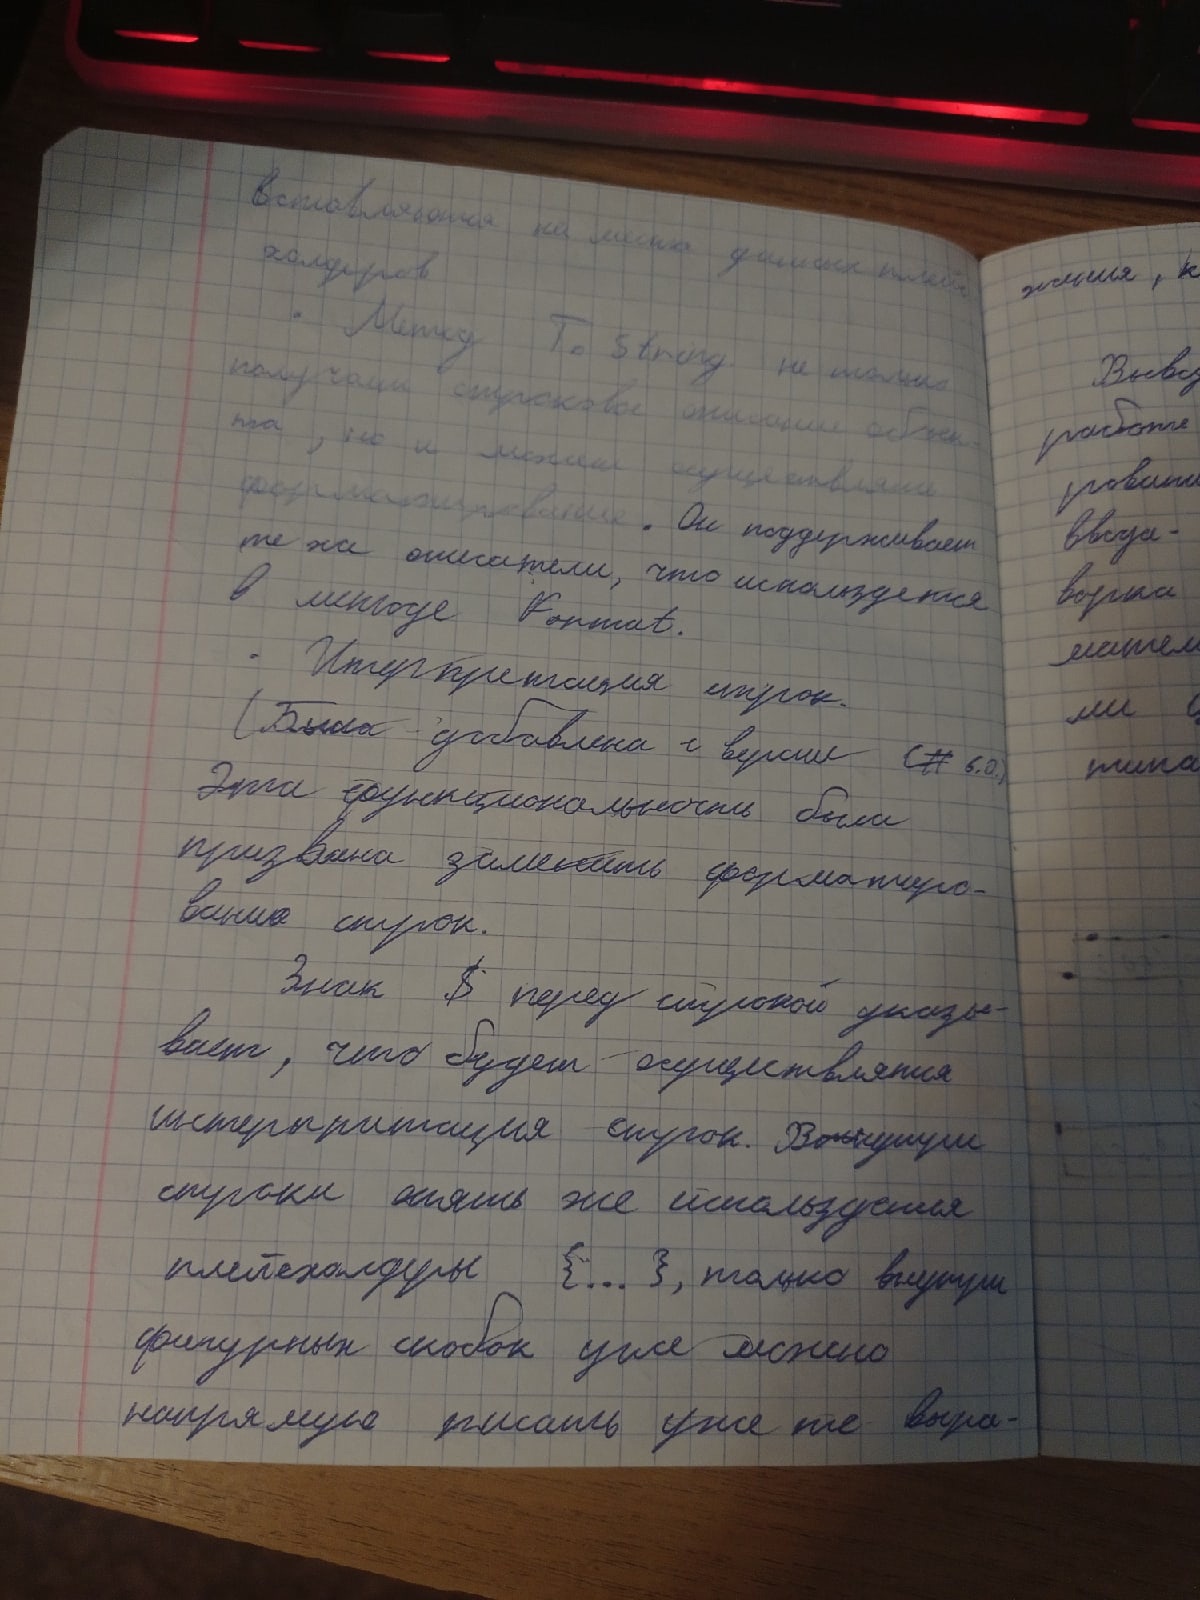 Вставляются на место данных плейс
холдеров
· Метод ToString не только
получает строковое описание объек-
та, но и может осуществлять
форматирование. Он поддерживает
те же описатели, что используется
в методе Format.
· Интерпретация строк.
(Была добавлена с версии C# 6.0.)
Эта функциональность была
призвана заменить форматиро-
вание строк.
Знак $ перед строкой указы-
вает, что будет осуществлятся
интерпритация строк. Внутри
строки опять же используются
плейсхолдеры {...}, только внутри
фигурных скобок уже можно
напрямую писать уже те выра-
жения, к
Вывод
работе
ввода-
ворка
ми
типа